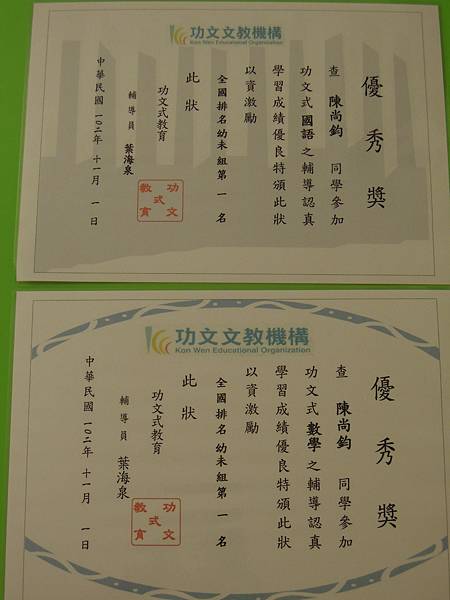 功文文教機構
Kon Wen Educational Organization
優秀獎
查 陳尚鈞 同學參加
功文式國語之輔導認真
學習成績優良特頒此狀
以資激勵
全國排名幼未組第一名
此狀
功文式教育
輔導員 葉海泉
功文式教育
中華民國 一〇二年 十一月 一日
功文文教機構
Kon Wen Educational Organization
優秀獎
查 陳尚鈞 同學參加
功文式數學之輔導認真
學習成績優良特頒此狀
以資激勵
全國排名幼未組第一名
此狀
功文式教育
輔導員 葉海泉
功文式教育
中華民國 一〇二年 十一月 一日